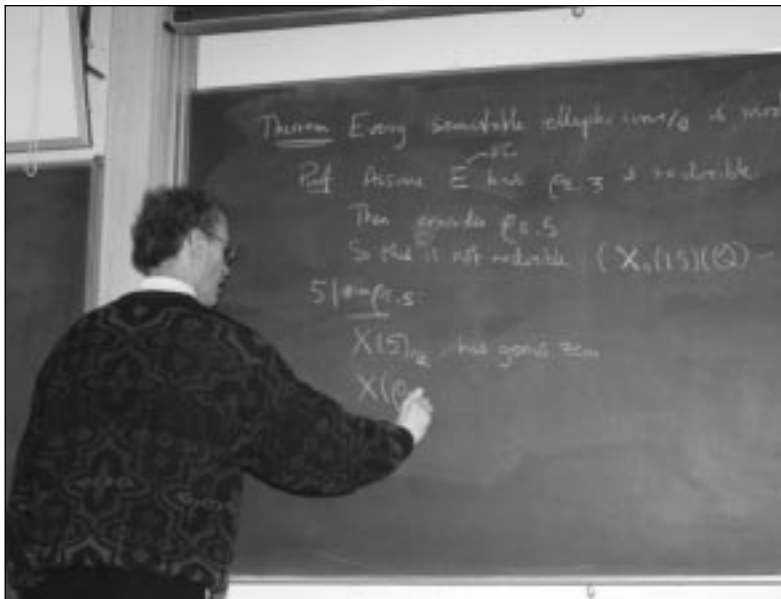 Theorem Every semistable elliptic curve/Q is mod
Pf Assume E has ρE,3 is reducible
Then consider ρE,5
So this is not reducible (X₀(15)(Q) –
5 | # im ρE,5
X(5)/Q has genus zero
X(ρ